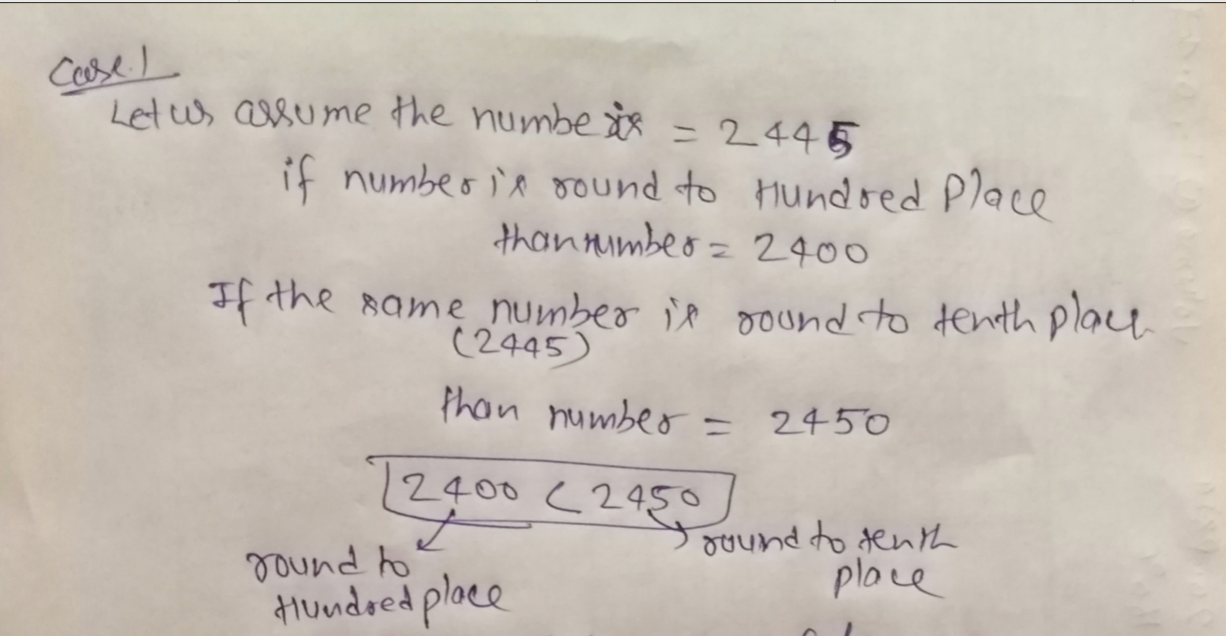 Case.1
Let us assume the numbe is = 2445
if number is round to Hundred Place
than number = 2400
If the same number is round to tenth place
(2445)
than number = 2450
2400 < 2450
round to
Hundred place
round to tenth
place